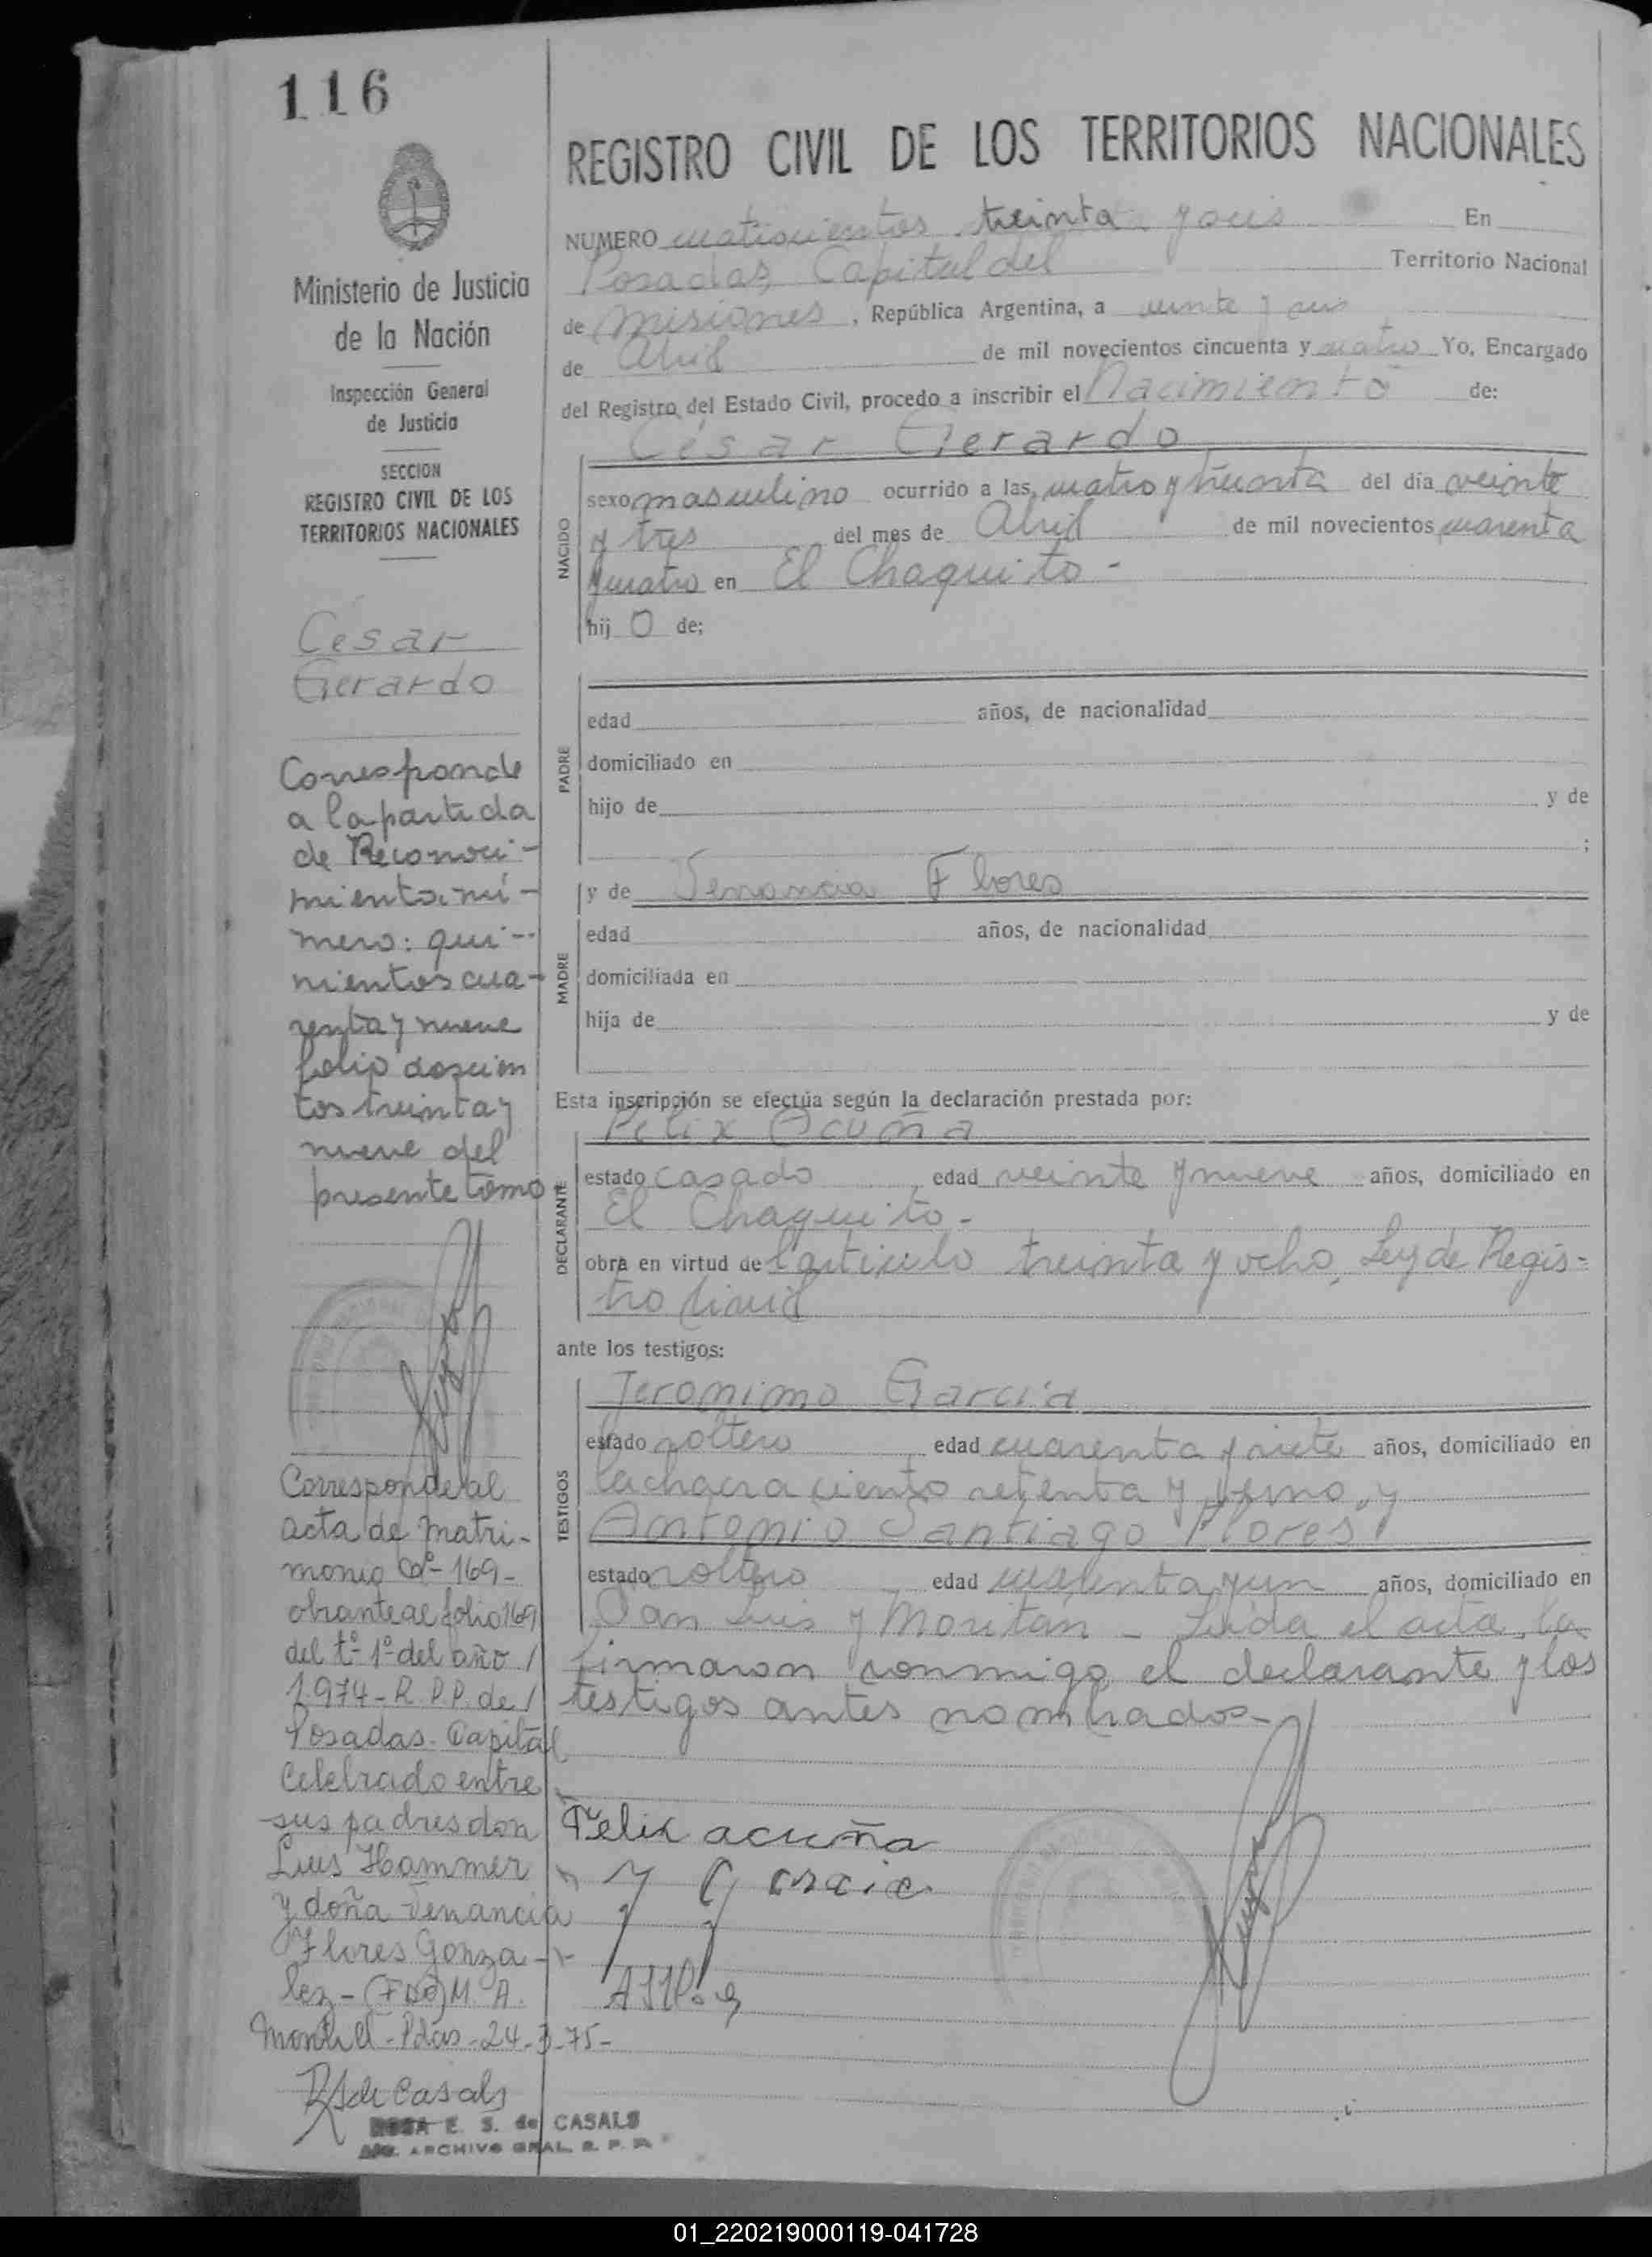 116
Ministerio de Justicia
de la Nación
Inspección General
de Justicia
SECCION
REGISTRO CIVIL DE LOS
TERRITORIOS NACIONALES
César
Gerardo
Corresponde
a la partida
de Reconoci-
miento nú-
mero: qui-
nientos cua-
renta y nueve
folio doscien
tos treinta y
nueve del
presente tomo
Corresponde al
acta de matri-
monio Nº 169-
obrante al folio 169
del tº 1º del año /
1974 - R.P.P. de /
Posadas. Capital
Celebrado entre
sus padres don
Luis Hammer
y doña Venancia
Flores Gonza-
lez - (FDO) M. A.
Pdas - 24-3-75-
RS de Casals
ROSA E. S. de CASALS
ARCHIVO GRAL. R. P. P.
REGISTRO CIVIL DE LOS TERRITORIOS NACIONALES
NUMERO cuatrocientos treinta y seis En
Posadas, Capital del Territorio Nacional
de Misiones, República Argentina, a veinte y seis
de Abril de mil novecientos cincuenta y cuatro Yo, Encargado
del Registro del Estado Civil, procedo a inscribir el Nacimiento de:
César Gerardo
NACIDO
sexo masculino ocurrido a las cuatro y treinta del día veinte
y tres del mes de Abril de mil novecientos cuarenta
y cuatro en El Chaquito -
hijo de;
PADRE
edad años, de nacionalidad
domiciliado en
hijo de y de
;
y de Venancia Flores
MADRE
edad años, de nacionalidad
domiciliada en
hija de y de
Esta inscripción se efectúa según la declaración prestada por:
Felix Acuña
DECLARANTE
estado casado edad veinte y nueve años, domiciliado en
El Chaquito -
obra en virtud de l'articulo treinta y ocho, Ley de Regis-
tro Civil
ante los testigos:
Jeronimo García
TESTIGOS
estado soltero edad cuarenta y siete años, domiciliado en
la chacra ciento setenta y uno, y
Antonio Santiago Flores
estado soltero edad cuarenta y un años, domiciliado en
San Luis y Moritán - Leída el acta, la
firmaron conmigo el declarante y los
testigos antes nombrados -
Felix acuña
J Garcia
01_220219000119-041728